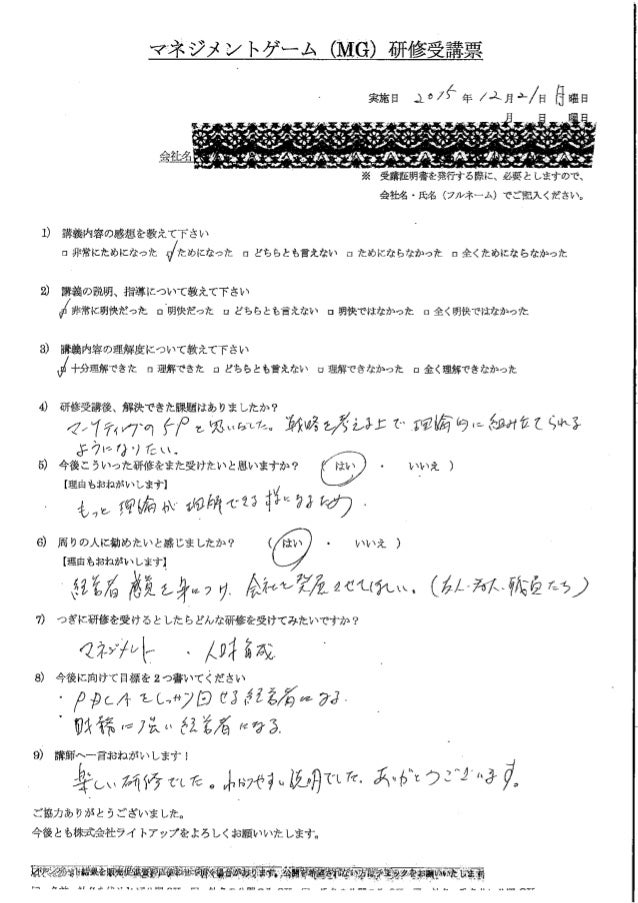 マネジメントゲーム（MG）研修受講票
実施日 2015年12月21日月曜日
月 日 曜日
会社名
※ 受講証明書を発行する際に、必要としますので、
会社名・氏名（フルネーム）でご記入ください。
1) 講義内容の感想を教えて下さい
□ 非常にためになった ☑ ためになった □ どちらとも言えない □ ためにならなかった □ 全くためにならなかった
2) 講義の説明、指導について教えて下さい
☑ 非常に明快だった □ 明快だった □ どちらとも言えない □ 明快ではなかった □ 全く明快ではなかった
3) 講義内容の理解度について教えて下さい
☑ 十分理解できた □ 理解できた □ どちらとも言えない □ 理解できなかった □ 全く理解できなかった
4) 研修受講後、解決できた課題はありましたか？
マーケティングの5Pと思いました。戦略を考える上で理論的に組み立てられる
ようになりたい。
5) 今後こういった研修をまた受けたいと思いますか？ （ はい ・ いいえ ）
【理由もおねがいします】
もっと理論が理解できる様になるため．
6) 周りの人に勧めたいと感じましたか？ （ はい ・ いいえ ）
【理由もおねがいします】
経営者感覚を身につけ、会社を発展させてほしい。（職員たち）
7) つぎに研修を受けるとしたらどんな研修を受けてみたいですか？
マネジメント ・人材育成
8) 今後に向けて目標を2つ書いてください
・PDCAをしっかり回せる経営者になる．
・財務に強い経営者になる．
9) 講師へ一言おねがいします！
楽しい研修でした。わかりやすい説明でした、ありがとうございます。
ご協力ありがとうございました。
今後とも株式会社ライトアップをよろしくお願いいたします。